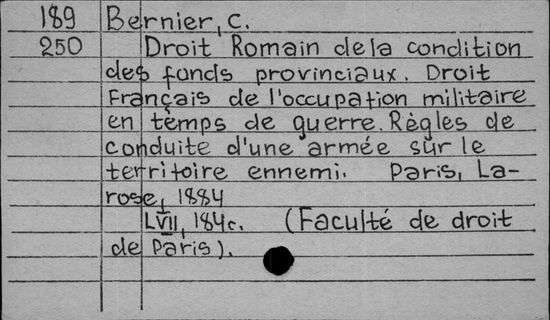 189 Bernier, C.
250 Droit Romain de la condition
des fonds provinciaux. Droit
Français de l'occupation militaire
en temps de guerre. Règles de
conduite d'une armée sur le
territoire ennemi. Paris, La-
rose, 1884
LVII, 184c. (Faculté de droit
de Paris).